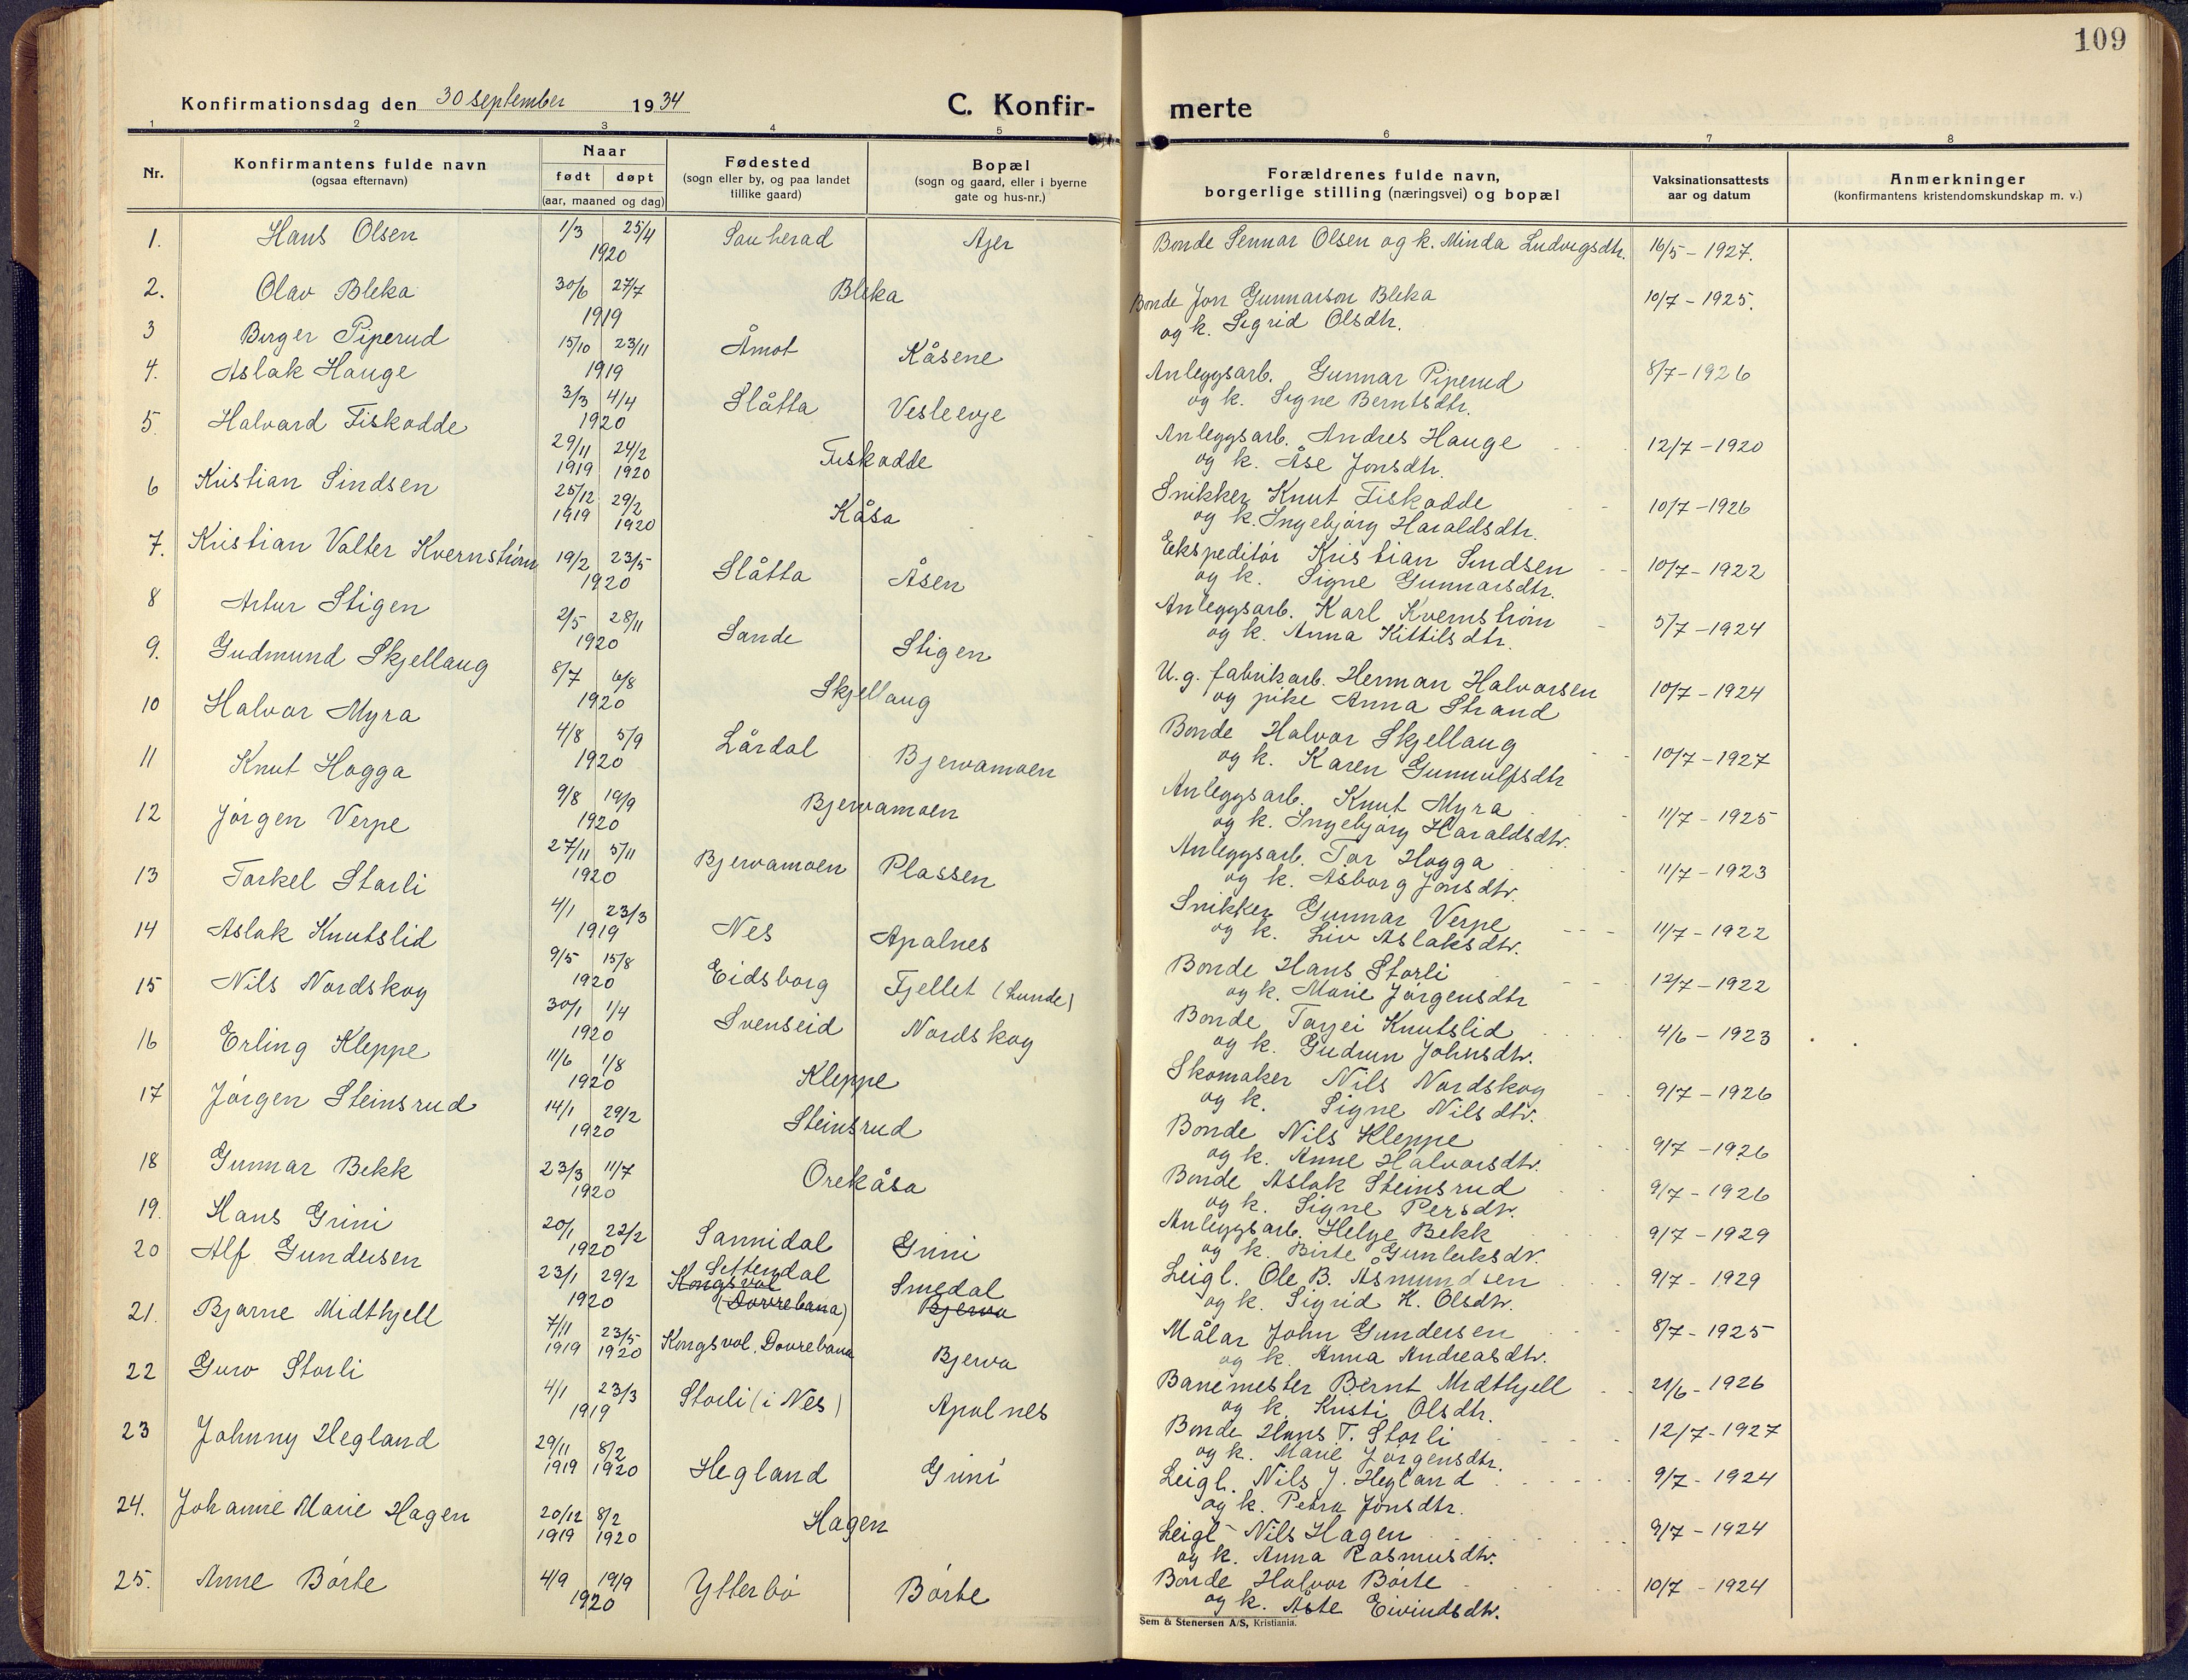 109
Konfirmationsdag den 30 september 1934
C. Konfir-merte
1 2 3 4 5 6 7 8
Nr.
Konfirmantens fulde navn
(ogsaa efternavn)
Naar
født døpt
(aar, maaned og dag)
Fødested
(sogn eller by, og paa landet
tillike gaard)
Bopæl
(sogn og gaard, eller i byerne
gate og hus-nr.)
Forældrenes fulde navn,
borgerlige stilling (næringsvei) og bopæl
Vaksinationsattests
aar og datum
Anmerkninger
(konfirmantens kristendomskundskap m. v.)
1. Hans Olsen 1/3 25/4 1920 Sauherad Ajer Bonde Olsen og k. Minda Ludvigsdtr. 16/5 - 1927.
2. Olav Bleka 30/6 27/7 1919 Bleka Bonde Jon Gunnarson Bleka
og k. Sigrid Olsdtr. 10/7 - 1925.
3 Birger Piperud 15/10 23/11 1919 Åmot Kåsene Anleggsarb. Gunnar Piperud
og k. Signe Berntsdtr. 8/7 - 1926
4. Aslak Hauge 3/3 4/4 1920 Slåtta Vesleevje Anleggsarb. Andres Hauge
og k. Åse Jonsdtr. 12/7 - 1920
5. Halvard Fiskodde 29/11 1919 24/2 1920 Fiskodde Snikker Knut Fiskodde
og k. Ingebjørg Haraldsdtr. 10/7 - 1926
6 Kristian Sindsen 25/12 1919 29/2 1920 Kåsa Ekspeditør Kristian Sindsen
og k. Signe Gunnarsdtr. 10/7 - 1922
7. Kristian Valter Kvernstrøm 19/2 23/5 1920 Slåtta Åsen Anleggsarb. Karl Kvernstrøm
og k. Anna Kittilsdtr. 5/7 - 1924
8 Artur Stigen 2/5 28/11 1920 Sande Stigen U.g. fabrikarb. Herman Halvorsen
og pike Anna Strand 10/7 - 1924
9. Gudmund Skjellaug 8/7 6/8 1920 Skjellaug Bonde Halvor Skjellaug
og k. Karen Gunnulfsdtr 10/7 - 1927
10 Halvor Myra 4/8 5/9 1920 Lårdal Bjervamoen Anleggsarb. Knut Myra
og k. Ingebjørg Haraldsdtr. 11/7 - 1925
11 Knut Hogga 9/8 19/9 1920 Bjervamoen Anleggsarb. Tor Hogga
og k. Åsborg Jonsdtr. 11/7 - 1923
12 Jørgen Verpe 27/11 5/11 1920 Bjervamoen Plassen Snikker Gunnar Verpe
og k. Liv Aslaksdtr. 11/7 - 1922
13 Torkel Storli 4/1 23/3 1919 Nes Apalnes Bonde Hans Storli
og k. Marie Jørgensdtr 12/7 - 1922
14 Aslak Knutslid 9/5 15/8 1920 Eidsborg Fjellet (Lunde) Bonde Tarjei Knutslid
og k. Gudrun Johnsdtr. 4/6 - 1923
15 Nils Nordskog 30/1 1/4 1920 Svenseid Nordskog Skomaker Nils Nordskog
og k. Signe Nilsdtr. 9/7 - 1926
16 Erling Kleppe 11/6 1/8 1920 Kleppe Bonde Nils Kleppe
og k. Anne Halvorsdtr. 9/7 - 1926
17 Jørgen Steinsrud 14/1 29/2 1920 Steinsrud Bonde Aslak Steinsrud
og k. Signe Persdtr. 9/7 - 1926
18 Gunnar Bekk 23/3 11/7 1920 Orekåsa Anleggsarb. Helge Bekk
og k. Birte Gunleiksdtr. 9/7 - 1929
19. Hans Grini 20/1 22/2 1920 Sannidal Grini Leigl. Ole B. Åsmundsen
og k. Sigrid K. Olsdtr. 9/7 - 1929
20 Alf Gundersen 23/1 29/2 1920 Settendal Kongsvol (Dovrebana) Smedal Bjerva Målar John Gundersen
og k. Anna Andreasdtr. 8/7 - 1925
21. Bjarne Midthjell 7/11 1919 23/5 1920 Kongsvol, Dovrebana Bjerva Banemester Bernt Midthjell
og k. Kristi Olsdtr. 21/6 - 1926
22 Guro Storli 4/1 23/3 1919 Storli (i Nes) Apalnes Bonde Hans T. Storli
og k. Marie Jørgensdtr. 12/7 - 1927
23 Johnny Hegland 29/11 1919 8/2 1920 Hegland Grini Leigl. Nils J. Hegland
og k. Petra Jonsdtr. 9/7 - 1924
24. Johanne Marie Hagen 20/12 1919 8/2 1920 Hagen Leigl Nils Hagen
og k. Anna Rasmusdtr. 9/7 - 1924
25. Anne Børte 4/9 19/9 1920 Ytterbø Børte Bonde Halvor Børte
og k. Åste Eivindsdtr. 10/7 - 1924
Sem & Stenersen A/S, Kristiania.